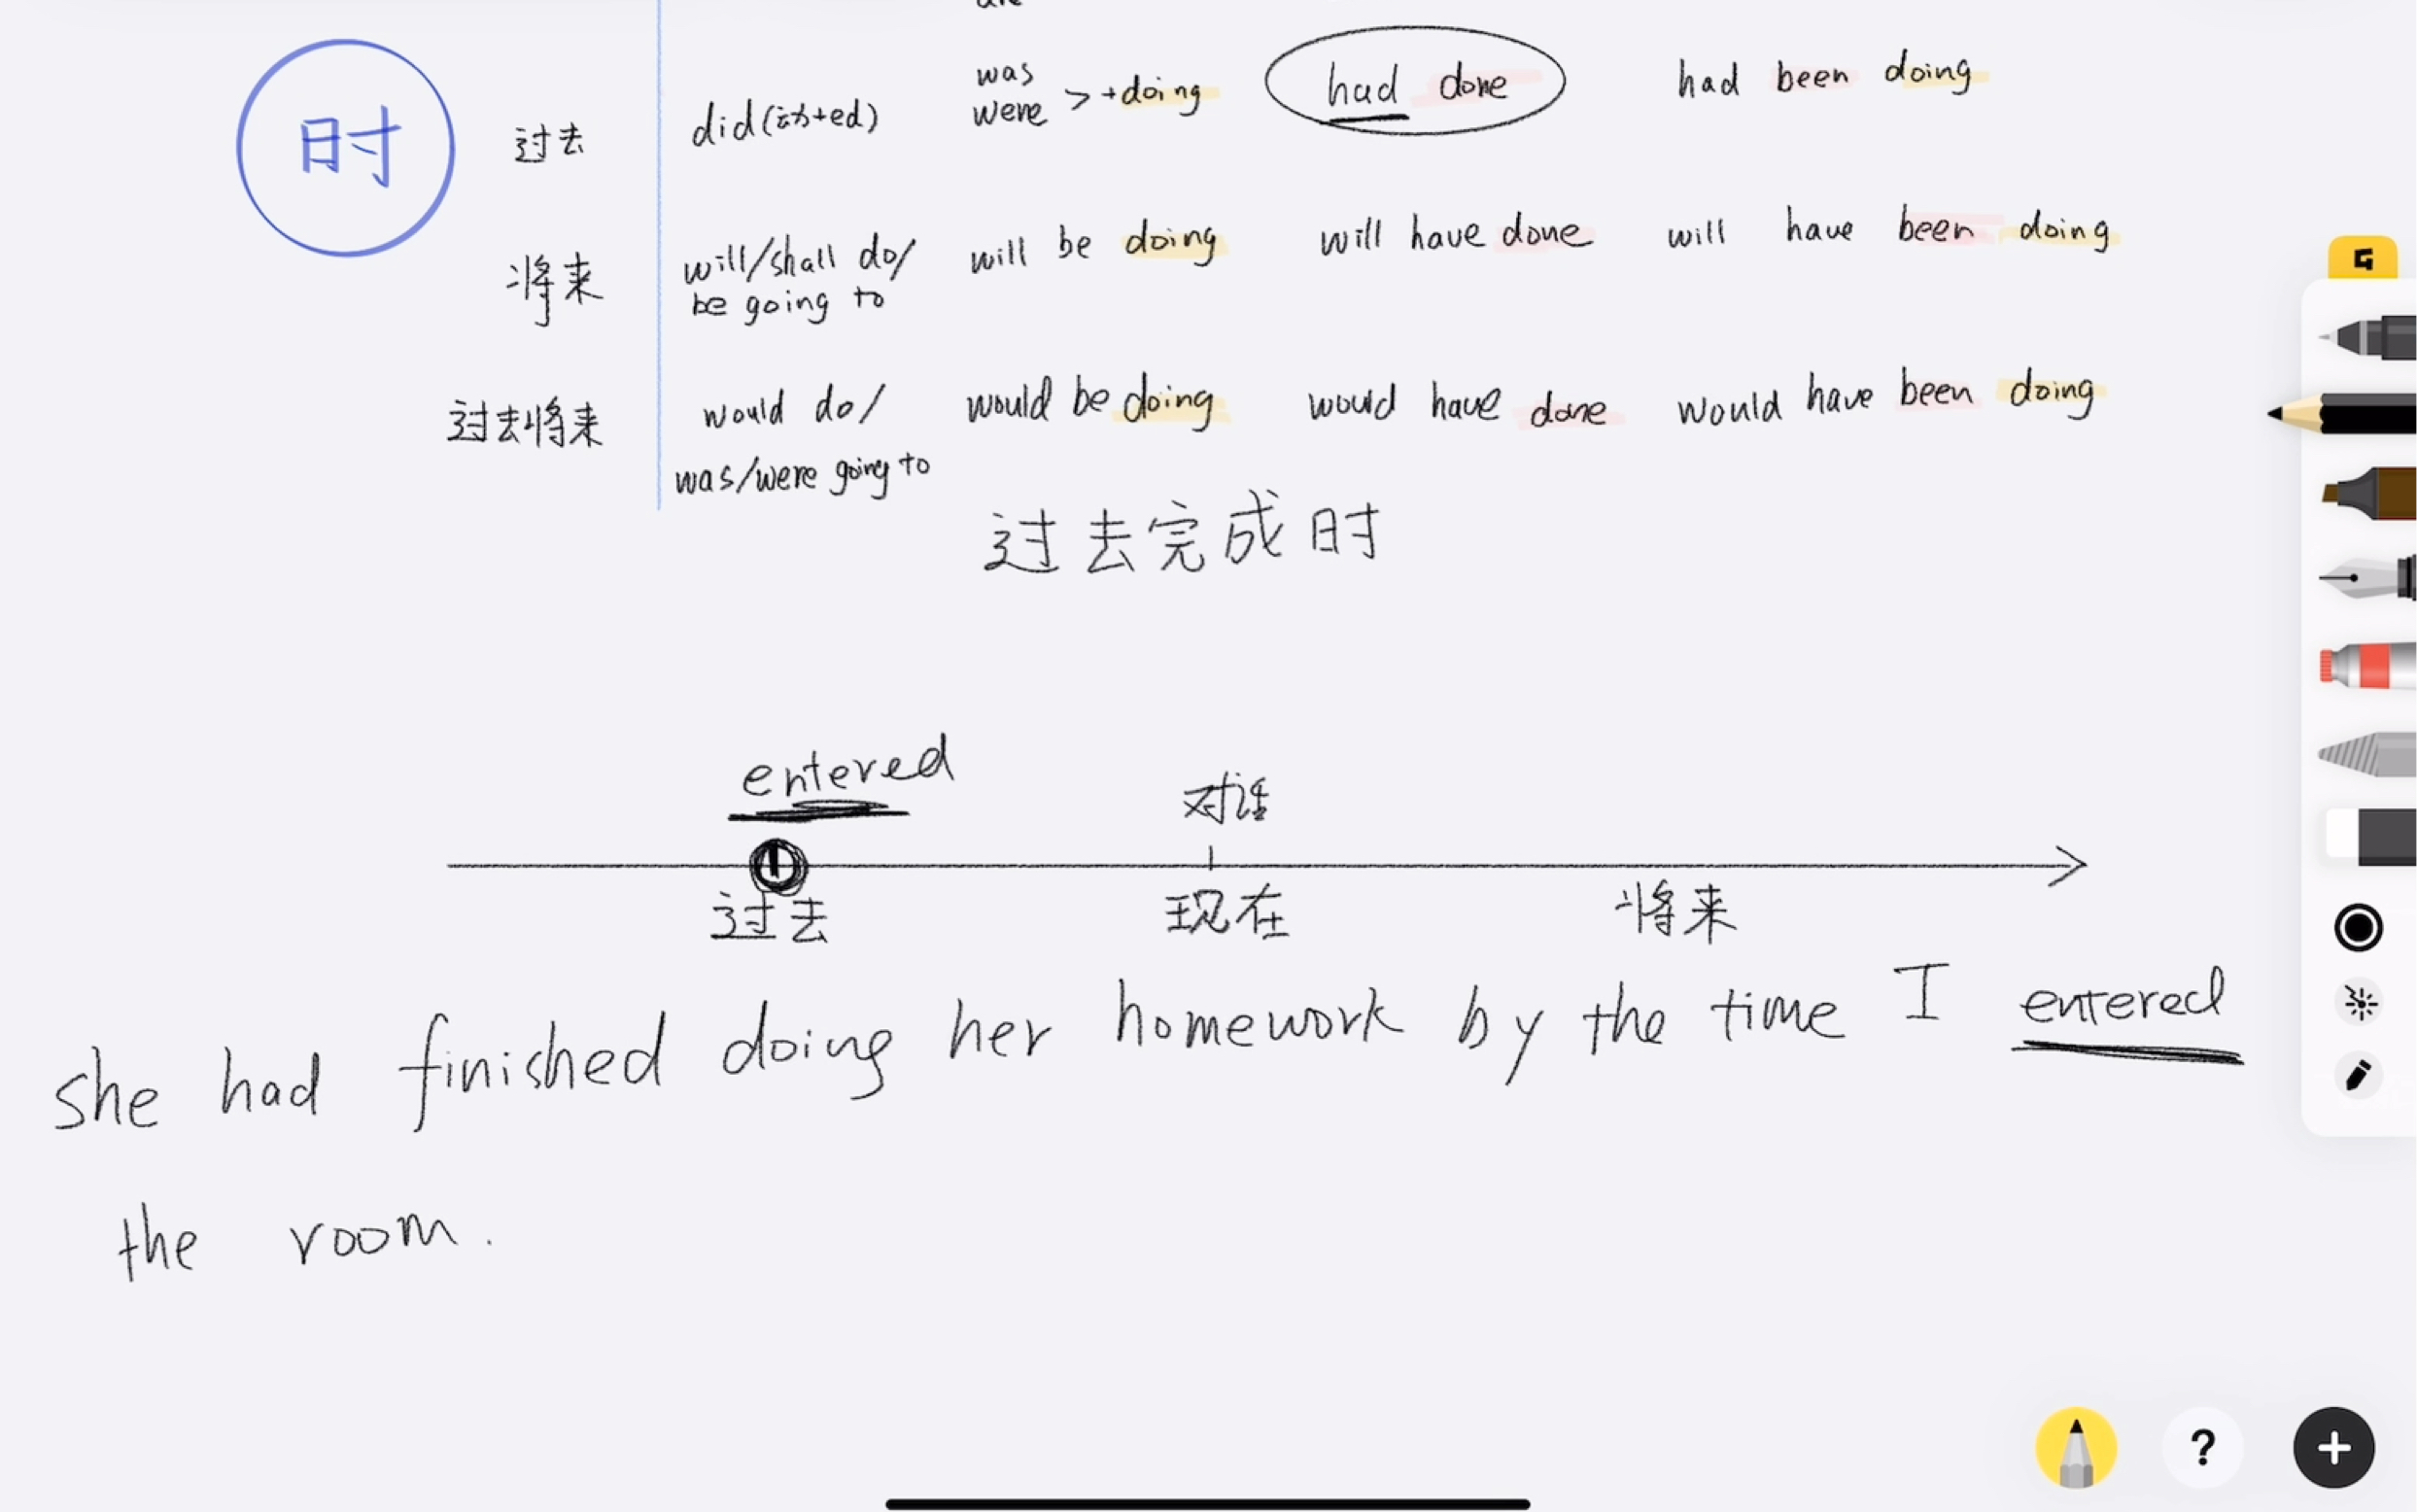 was
were > +doing
had done
had been doing
时
过去
did(动+ed)
将来
will/shall do/
be going to
will be doing
will have done
will have been doing
过去将来
would do/
was/were going to
would be doing
would have done
would have been doing
过去完成时
entered
对话
过去
现在
将来
she had finished doing her homework by the time I entered
the room.
?
+